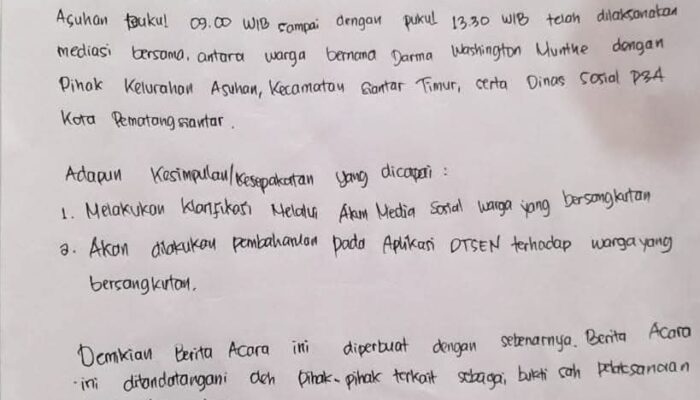 Asuhan pukul 09.00 WIB sampai dengan pukul 13.30 WIB telah dilaksanakan
mediasi bersama, antara warga bernama Darma Washington Munthe dengan
Pihak Kelurahan Asuhan, Kecamatan Siantar Timur, serta Dinas Sosial P3A
Kota Pematangsiantar.
Adapun Kesimpulan/Kesepakatan yang dicapai :
1. Melakukan klarifikasi Melalui Akun Media Sosial warga yang bersangkutan
2. Akan dilakukan pembaharuan pada Aplikasi DTSEN terhadap warga yang
bersangkutan.
Demikian Berita Acara ini diperbuat dengan sebenarnya. Berita Acara
ini ditandatangani oleh pihak-pihak terkait sebagai, bukti sah pelaksanaan